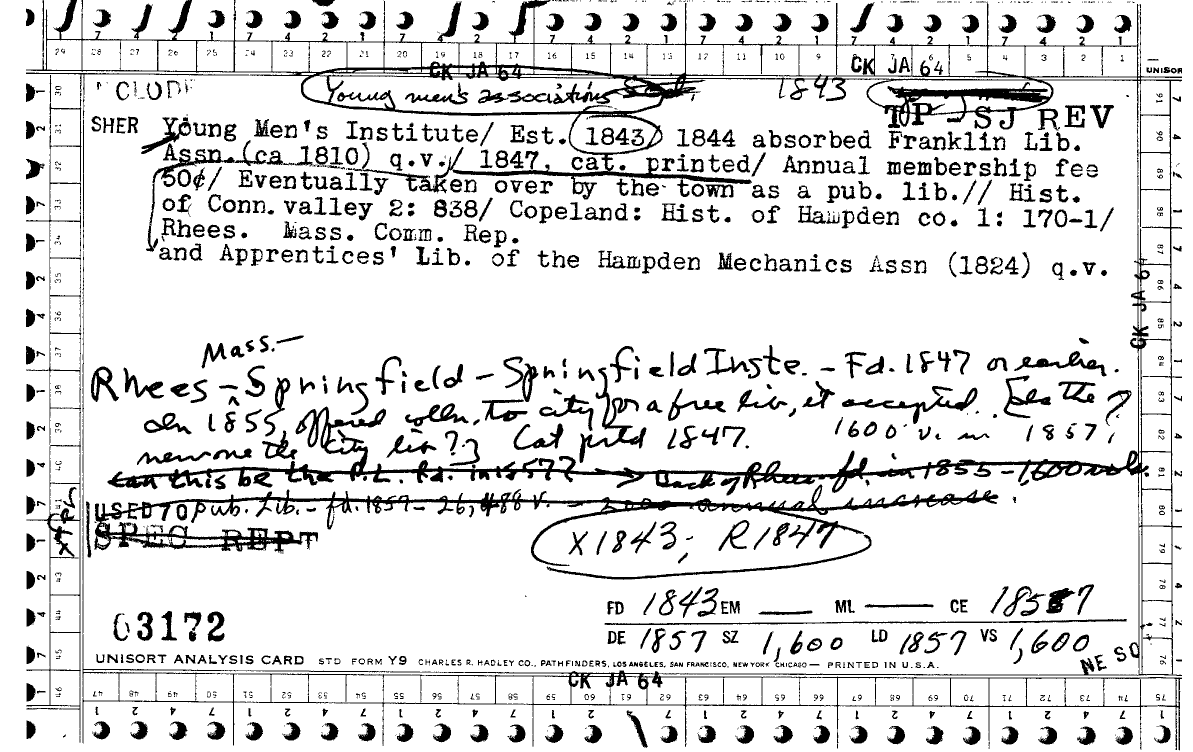 CK JA 64
CK JA 64
UNISORT
Young men's associations
1843
TOP SJ REV
SHER Young Men's Institute/ Est. 1843/ 1844 absorbed Franklin Lib.
Assn. (ca 1810) q.v./ 1847, cat. printed/ Annual membership fee
50¢/ Eventually taken over by the town as a pub. lib.// Hist.
of Conn. valley 2: 838/ Copeland: Hist. of Hampden co. 1: 170-1/
Rhees. Mass. Comm. Rep.
and Apprentices' Lib. of the Hampden Mechanics Assn (1824) q.v.
CK JA 64
Mass.—
Rhees - Springfield - Springfield Inste. - Fd. 1847 or earlier.
In 1855, offered colln. to city for a free lib, it accepted. [Is the
new one the city lib?] Cat prtd 1847. 1600 v. in 1857?
can this be the P.L. Fd. in 1857? → Back of Rhees fd. in 1855 - 1600 vols.
USED 70 Pub. Lib. - fd. 1857 - 26,488 v. - 2000 annual increase.
SPEC REPT
X1843; R1847
FD 1843 EM — ML — CE 1857
03172
DE 1857 SZ 1,600 LD 1857 VS 1,600
NE SO
UNISORT ANALYSIS CARD STD FORM Y9 CHARLES R. HADLEY CO., PATHFINDERS, LOS ANGELES, SAN FRANCISCO, NEW YORK CHICAGO — PRINTED IN U.S.A.
CK JA 64